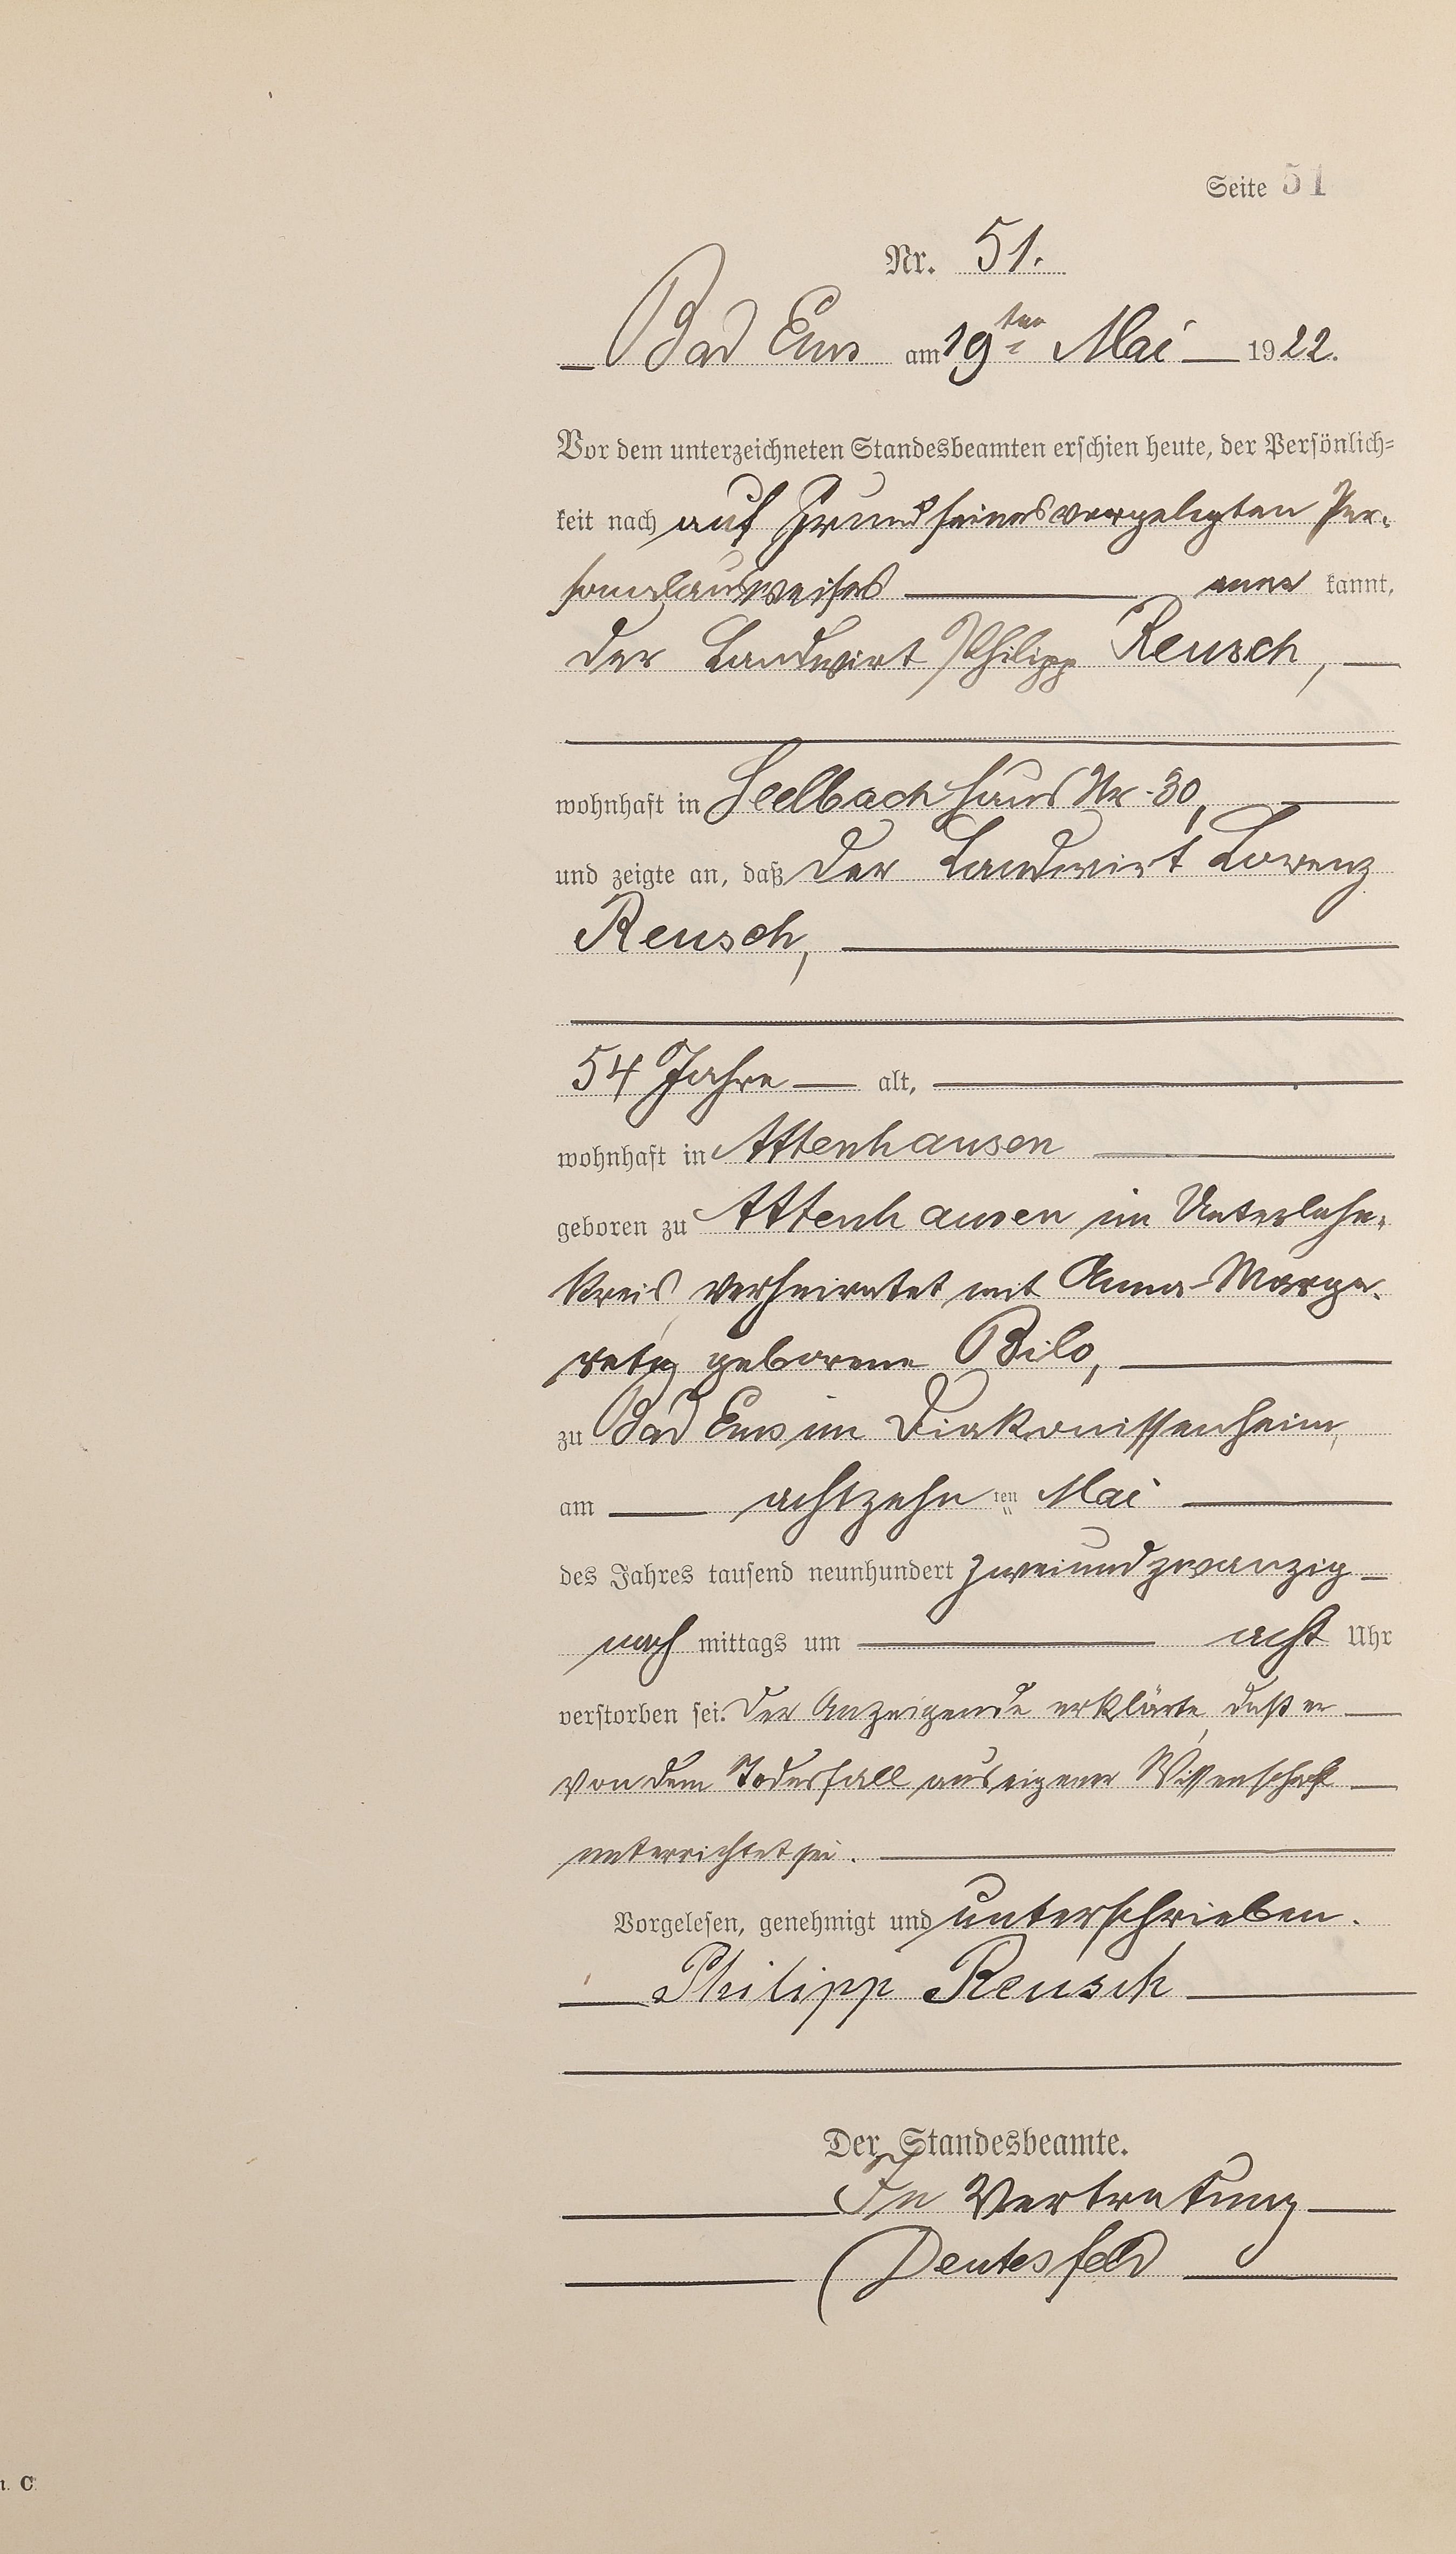 Seite 51
Nr. 51.
Bad Ems am 19ten Mai 1922.
Vor dem unterzeichneten Standesbeamten erschien heute, der Persönlich-
keit nach auf Grund seines vorgelegten Per-
sonalausweises aner kannt,
der Landwirt Philipp Reusch,
wohnhaft in Seelbach Haus Nr. 30,
und zeigte an, daß der Landwirt Lorenz
Reusch,
54 Jahre alt,
wohnhaft in Attenhausen
geboren zu Attenhausen im Unterlahn-
kreis, verheiratet mit Anna Marga-
rete geborene Bilo,
zu Bad Ems im Diakonissenheim,
am achtzehn ten Mai
des Jahres tausend neunhundert zweiundzwanzig
nach mittags um acht Uhr
verstorben sei. Der Anzeigende erklärte, daß er
von dem Todesfall aus eigener Wissenschaft
unterrichtet sei.
Vorgelesen, genehmigt und unterschrieben.
Philipp Reusch
Der Standesbeamte.
In Vertretung
Deutesfeld
n. C